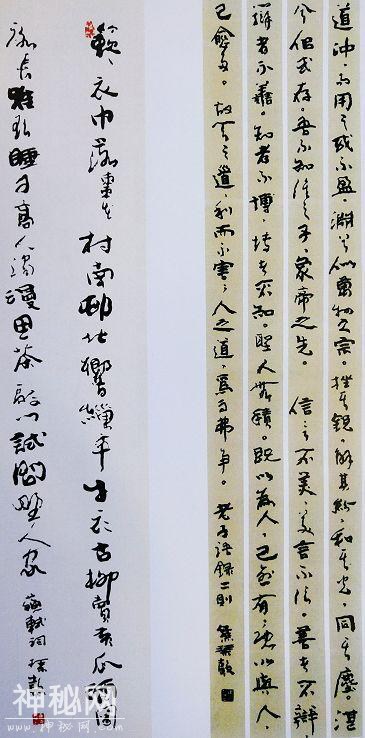 道沖，而用之或不盈。淵兮似萬物之宗。挫其銳，解其紛，和其光，同其塵。湛
兮似或存。吾不知誰之子，象帝之先。 信言不美，美言不信。善者不辯，
辯者不善。知者不博，博者不知。聖人無積。既以為人，己愈有，既以與人，
己愈多。故天之道，利而不害；人之道，為而弗爭。 老子語錄二則
簌簌衣巾落棗花村南邨北響繅車牛衣古柳賣黃瓜酒困
路長惟欲睡日高人渴漫思茶敲門試問野人家 蘇軾詞
神秘网